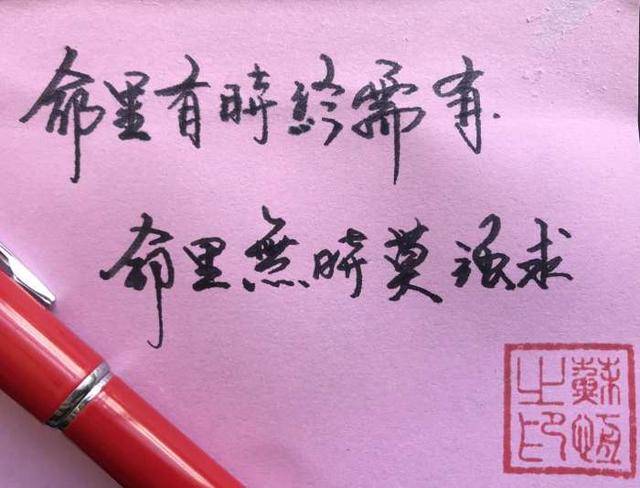 命里有時終需有.
命里無時莫强求
蘇恆
之印